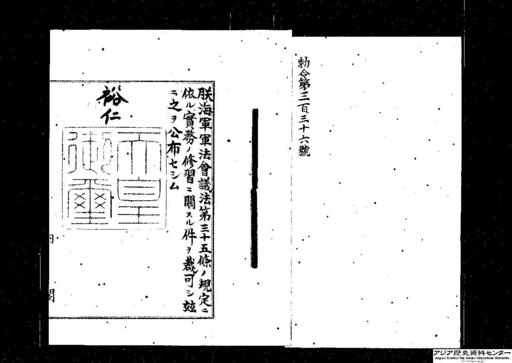 勅令第三百三十六號
朕海軍軍法會議法第三十五條ノ規定ニ
依ル實務ノ修習ニ關スル件ヲ裁可シ玆
ニ之ヲ公布セシム
裕仁
天皇
御璽
内閣
アジア歴史資料センター
Japan Center for Asian Historical Records